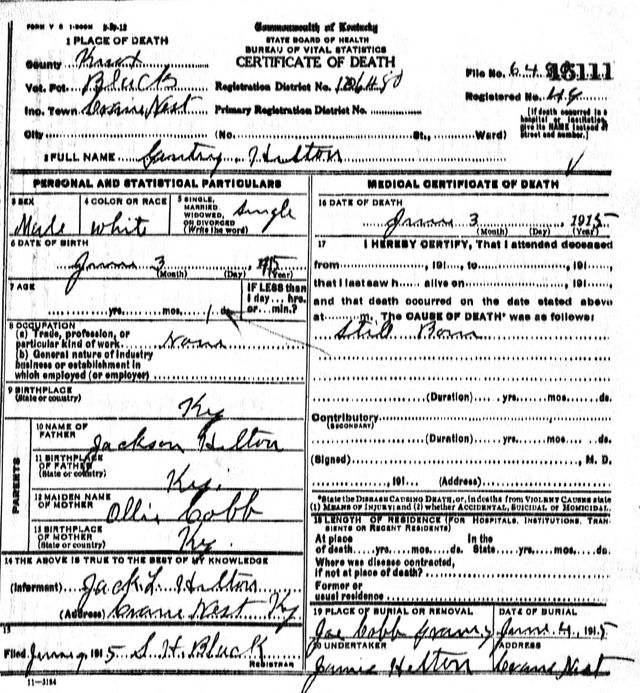 FORM V S 1-300M 5-29-12
Commonwealth of Kentucky
STATE BOARD OF HEALTH
BUREAU OF VITAL STATISTICS
CERTIFICATE OF DEATH
1 PLACE OF DEATH
County Knox
Vot. Pct. Black
Registration District No.
File No. 18111
Inc. Town Crane Nest
Primary Registration District No.
Registered No. 48
City (No. St., Ward)
(If death occurred in a hospital or institution, give its NAME instead of street and number.)
2 FULL NAME Gentry Helton
PERSONAL AND STATISTICAL PARTICULARS
3 SEX Male
4 COLOR OR RACE white
5 SINGLE, MARRIED, WIDOWED, OR DIVORCED (Write the word) single
6 DATE OF BIRTH
June 3 1915
(Month) (Day) (Year)
7 AGE
yrs. mos. 1 ds.
IF LESS than 1 day... hrs. or... min.?
8 OCCUPATION
(a) Trade, profession, or
particular kind of work None
(b) General nature of industry
business or establishment in
which employed (or employer)
9 BIRTHPLACE
(State or country)
Ky
PARENTS
10 NAME OF FATHER
Jackson Helton
11 BIRTHPLACE OF FATHER
(State or country)
Ky.
12 MAIDEN NAME OF MOTHER
Ollie Cobb
13 BIRTHPLACE OF MOTHER
(State or country)
Ky.
14 THE ABOVE IS TRUE TO THE BEST OF MY KNOWLEDGE
(Informant) Jack L. Helton
(Address) Crane Nest Ky
15
Filed June 9 1915 S. H. Black
REGISTRAR
11-3184
MEDICAL CERTIFICATE OF DEATH
16 DATE OF DEATH
June 3 1915
(Month) (Day) (Year)
17 I HEREBY CERTIFY, That I attended deceased
from, 191, to, 191,
that I last saw h alive on, 191,
and that death occurred on the date stated above
at m. The CAUSE OF DEATH* was as follows:
Still Born
(Duration) yrs. mos. ds.
Contributory
(SECONDARY)
(Duration) yrs. mos. ds.
(Signed), M. D.
, 191 (Address)
*State the DISEASE CAUSING DEATH, or, in deaths from VIOLENT CAUSES state
(1) MEANS OF INJURY; and (2) whether ACCIDENTAL, SUICIDAL OR HOMICIDAL.
18 LENGTH OF RESIDENCE (FOR HOSPITALS, INSTITUTIONS, TRANSIENTS OR RECENT RESIDENTS)
At place of death yrs. mos. ds. In the State yrs. mos. ds.
Where was disease contracted,
if not at place of death?
Former or
usual residence
19 PLACE OF BURIAL OR REMOVAL
Joe Cobb
DATE OF BURIAL
June 4, 1915
20 UNDERTAKER
Jamie Helton
ADDRESS
Crane Nest